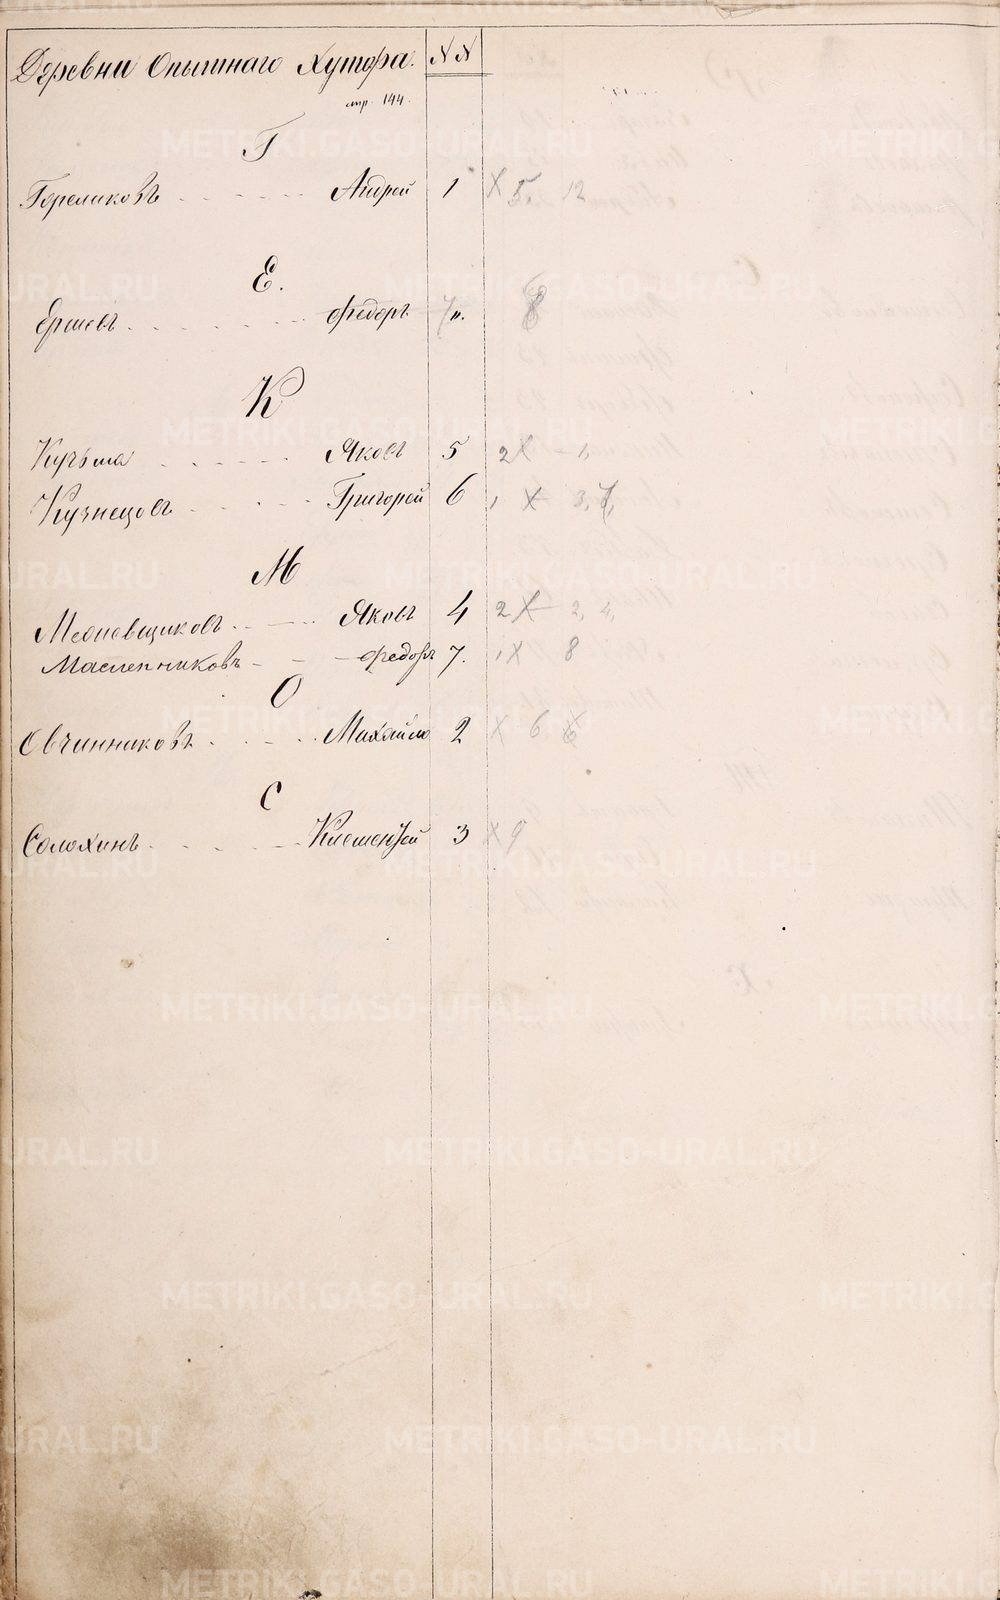 Деревни Опытнаго Хутора. N N
стр. 144.
Г
Гореликовъ Андрей 1 X 5, 12
Е.
Ершовъ Федоръ 7 8
К
Кузьма Яковъ 5 2 X 1,
Кузнецовъ Григорей 6 1 X 3, 7,
М
Мелновщиковъ Яковъ 4 2 X 2, 4,
Масленниковъ Федоръ 7. 1 X 8
О
Овчинниковъ Михайло 2 X 6
С
Солохинъ Климентей 3 X 9
METRIKI.GASO-URAL.RU